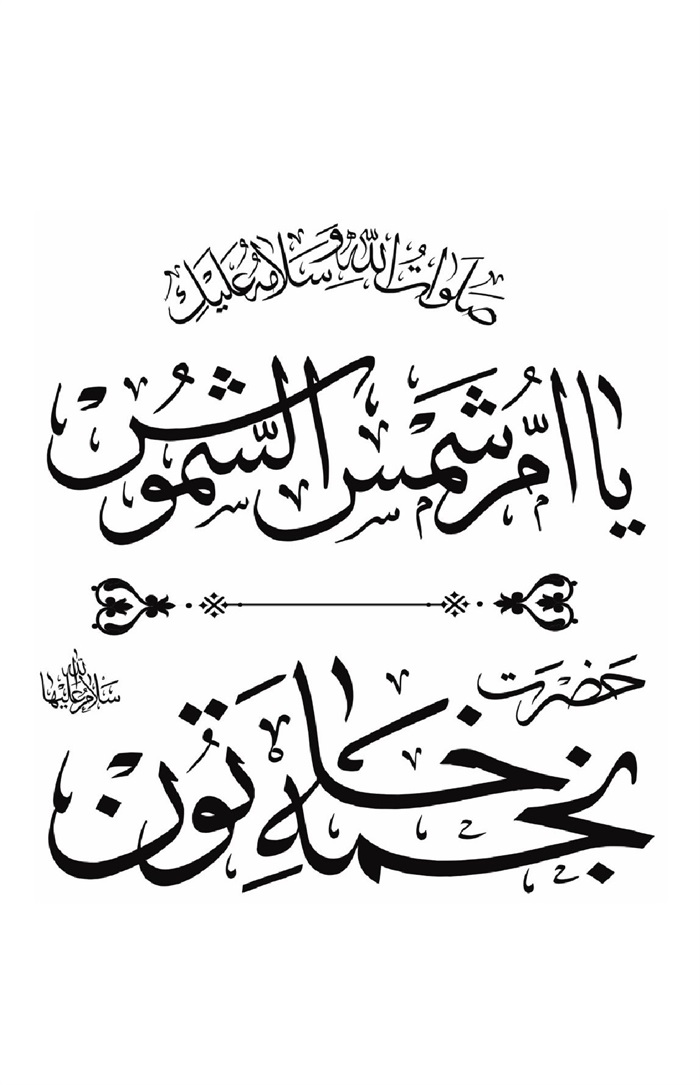 صَلَواتُ اللّٰهِ وَ سَلامُهُ عَلَيْكِ
يا اُمَّ شَمْسِ الشُّموسْ
حَضْرَت
نجمه خاتون
سَلامُ اللّٰهِ عَلَيْها